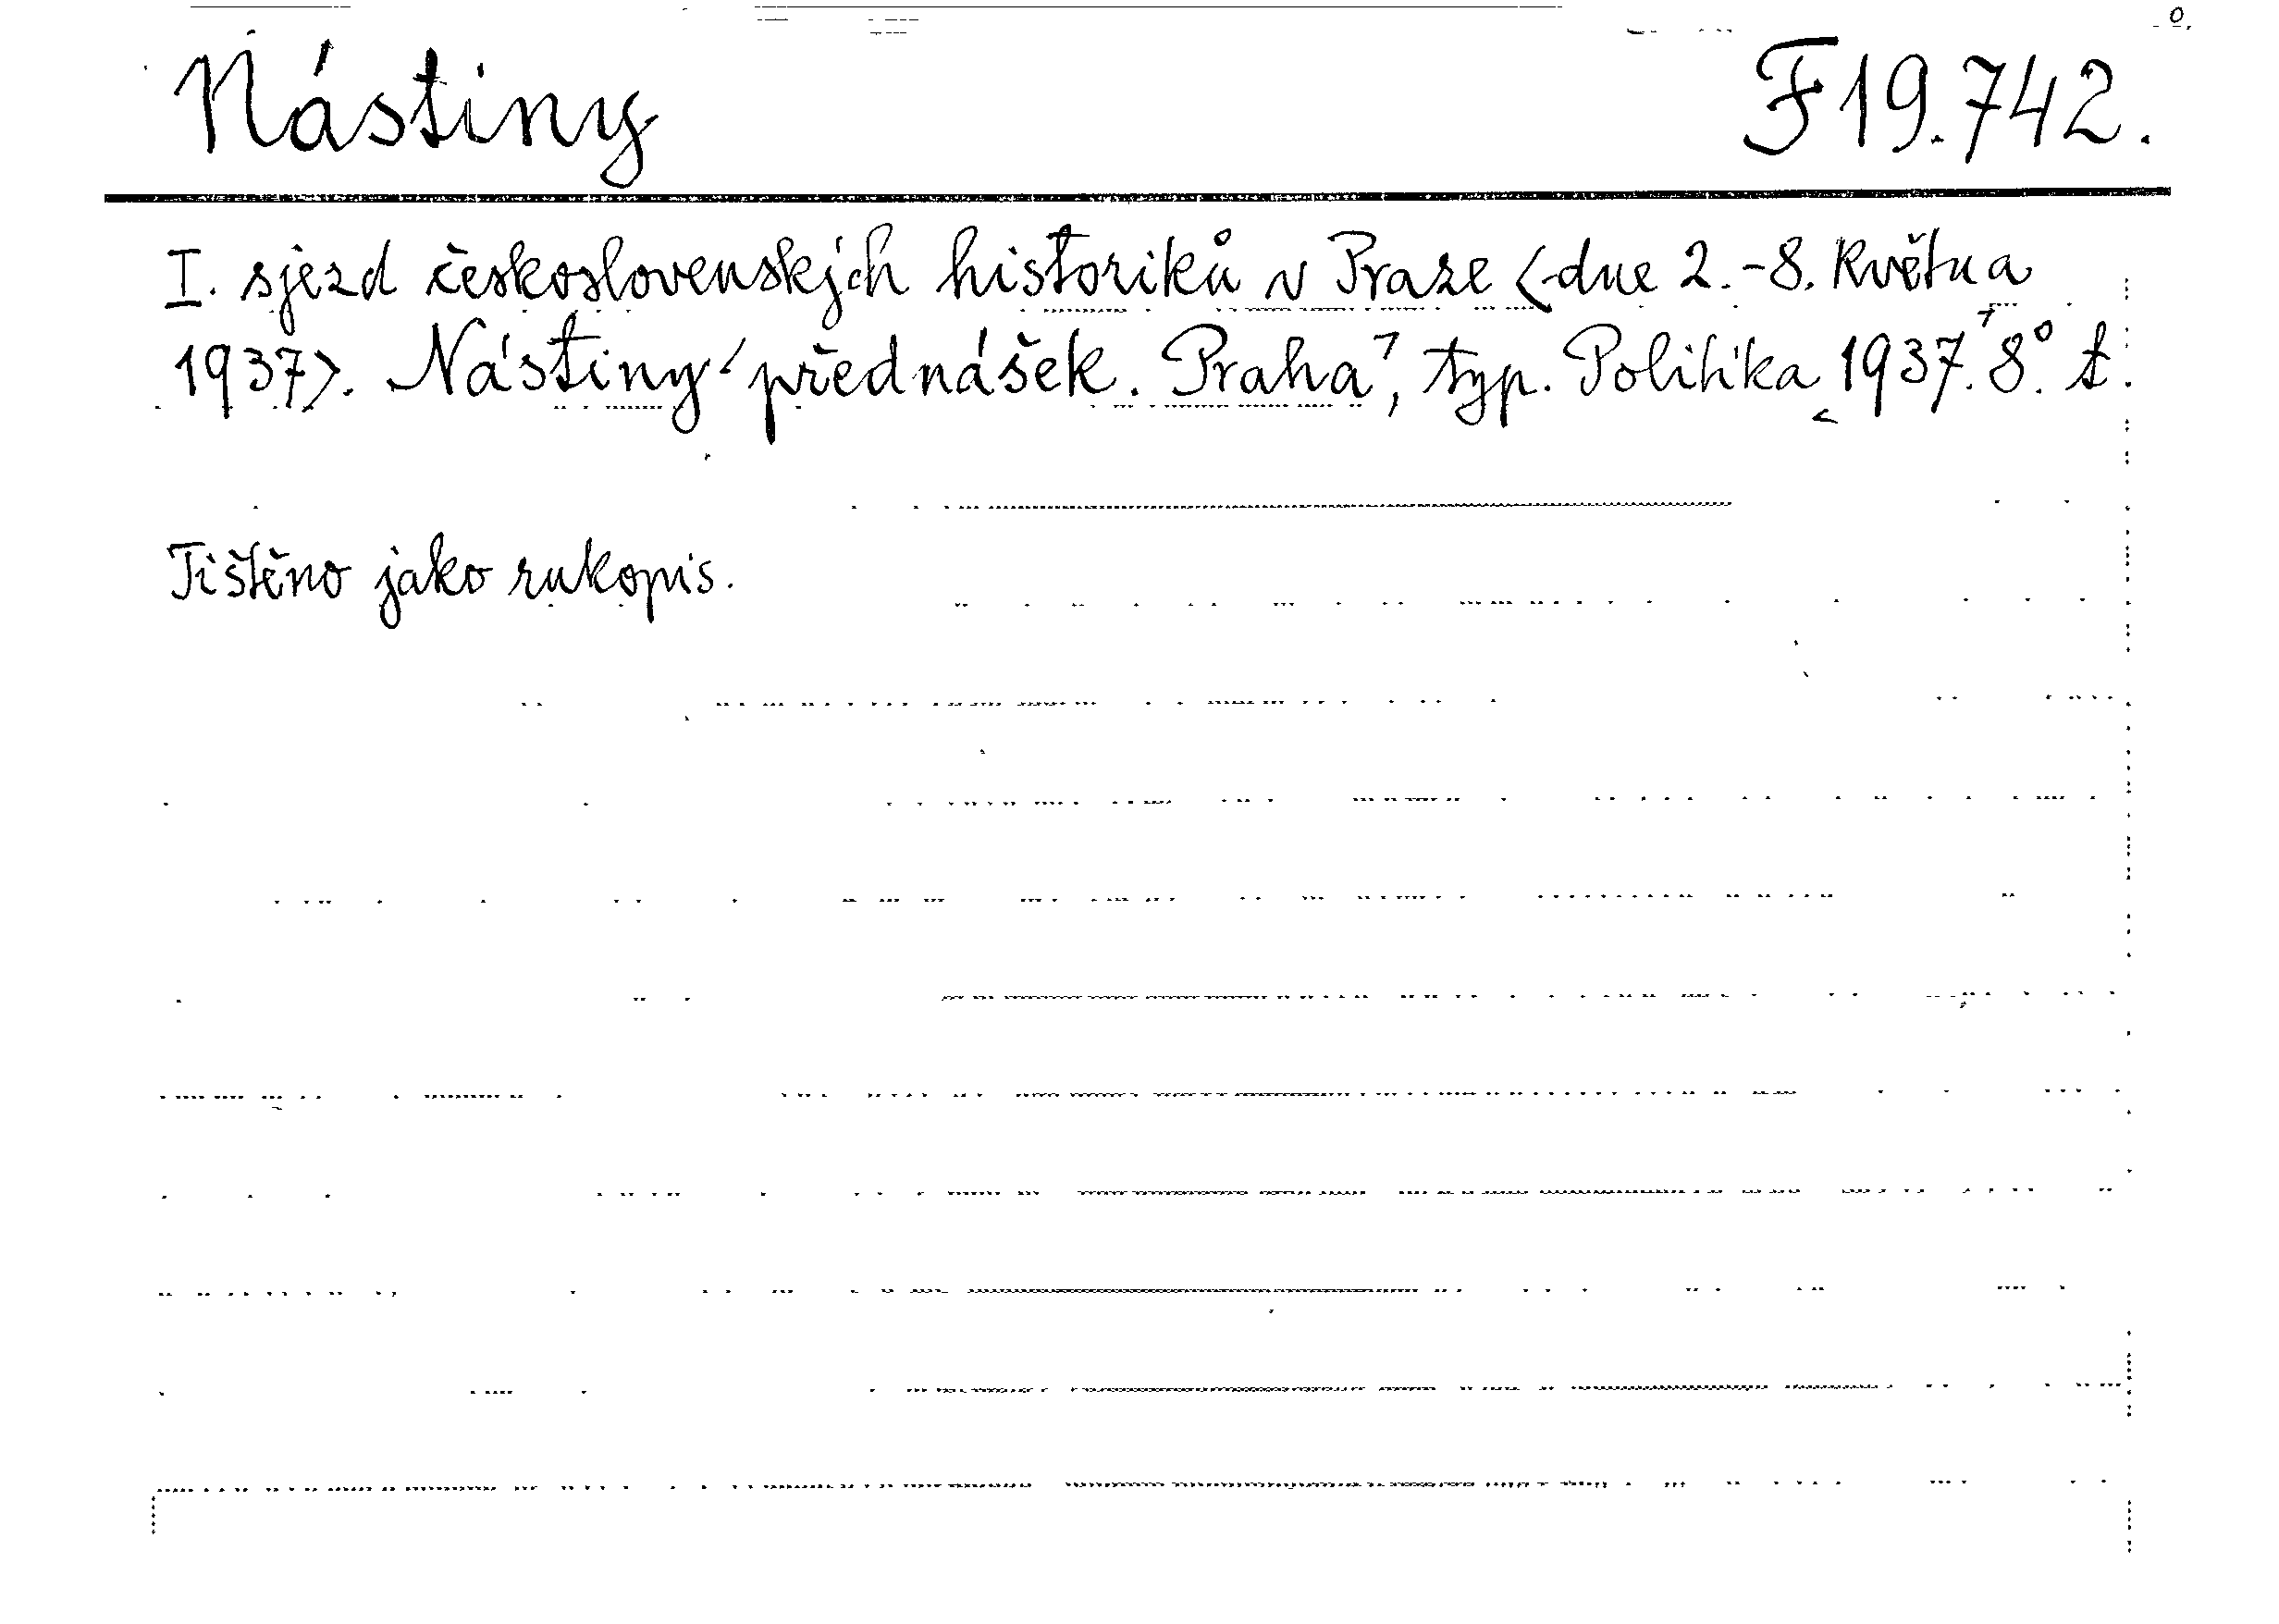 Nástiny F 19.742.
I. sjezd československých historiků v Praze (dne 2.-8. května
1937). Nástiny přednášek. Praha, typ. Politika 1937. 8°. t.
Tištěno jako rukopis.